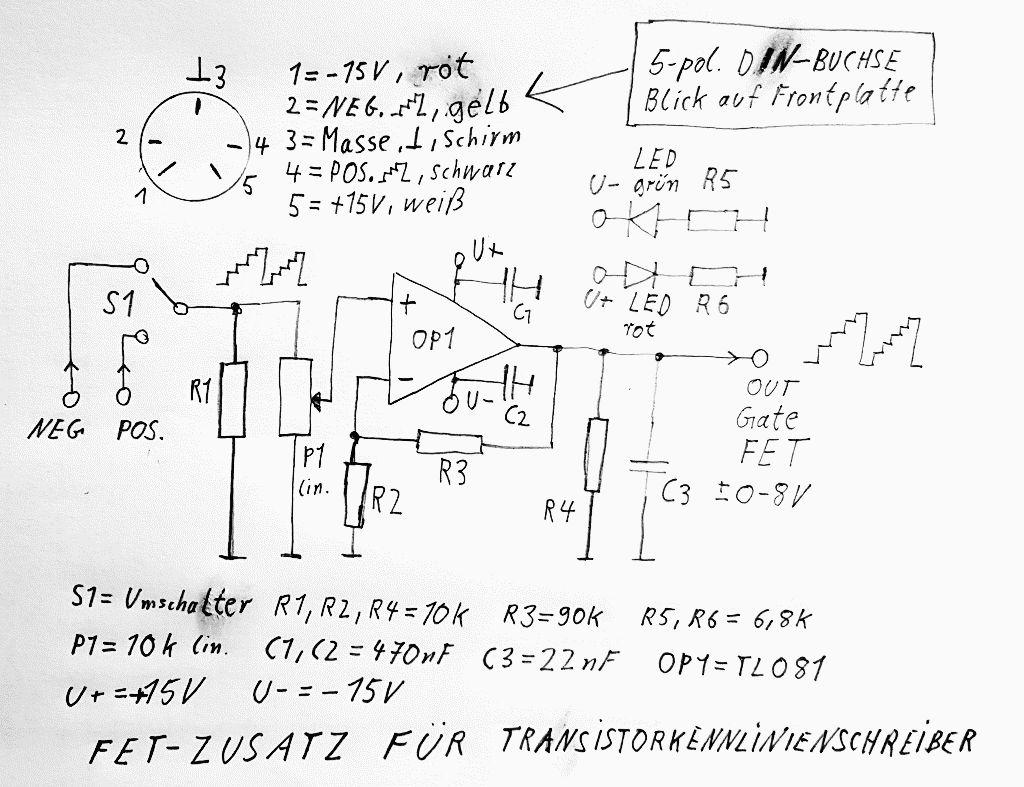 3
2
4
1
5
1=-15V, rot
2=NEG., gelb
3=Masse, ⊥, Schirm
4=POS., schwarz
5=+15V, weiß
5-pol. DIN-BUCHSE
Blick auf Frontplatte
LED
U- grün R5
U+ LED R6
rot
S1
NEG. POS.
R1
P1
lin.
+
OP1
-
U+
C1
U-
C2
R3
R2
R4
C3
OUT
Gate
FET
±0-8V
S1= Umschalter R1, R2, R4=10k R3=90k R5, R6= 6,8k
P1=10k lin. C1, C2=470nF C3=22nF OP1=TL081
U+=+15V U-=-15V
FET-ZUSATZ FÜR TRANSISTORKENNLINIENSCHREIBER